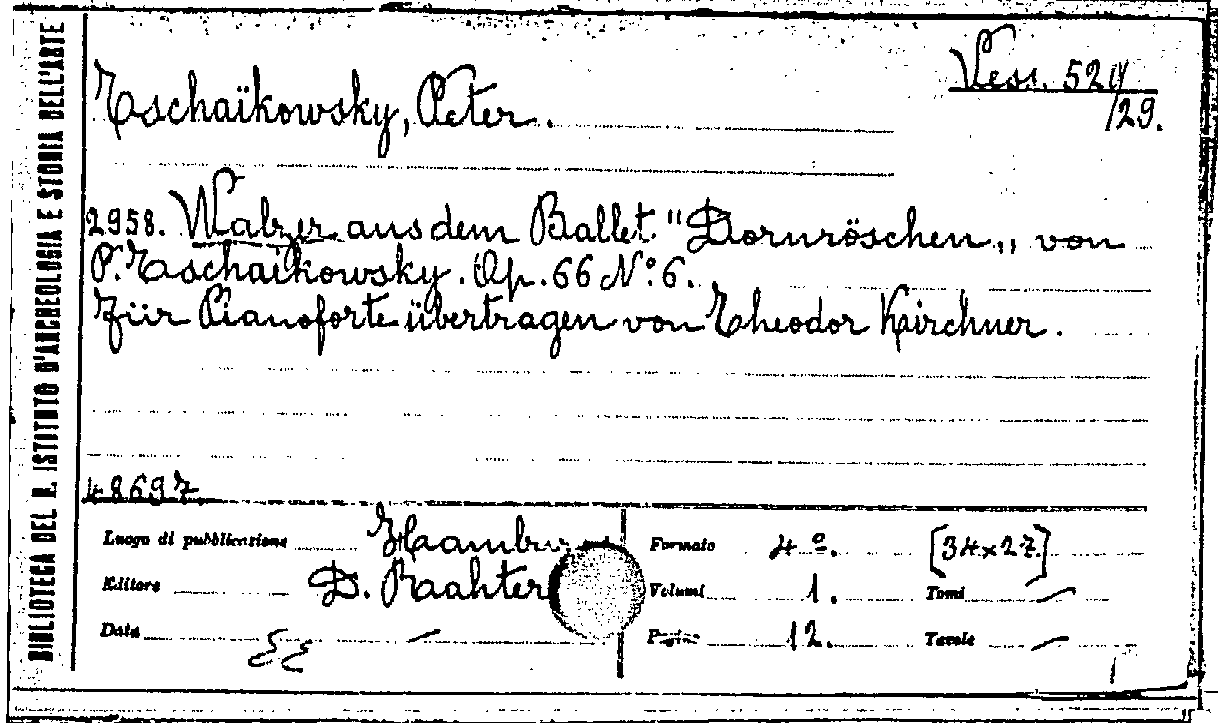 BIBLIOTECA DEL R. ISTITUTO D'ARCHEOLOGIA E STORIA DELL'ARTE
Vess. 529/29.
Tschaïkowsky, Peter.
2958. Walzer aus dem Ballet "Dornröschen„ von
P. Tschaïkowsky. Op. 66 Nº 6.
Für Pianoforte übertragen von Theodor Kirchner.
48697
Luogo di pubblicazione Formato 4º. [34x27]
Editore D. Raahter Volumi 1. Tomi —
Data — Pagine 12. Tavole —